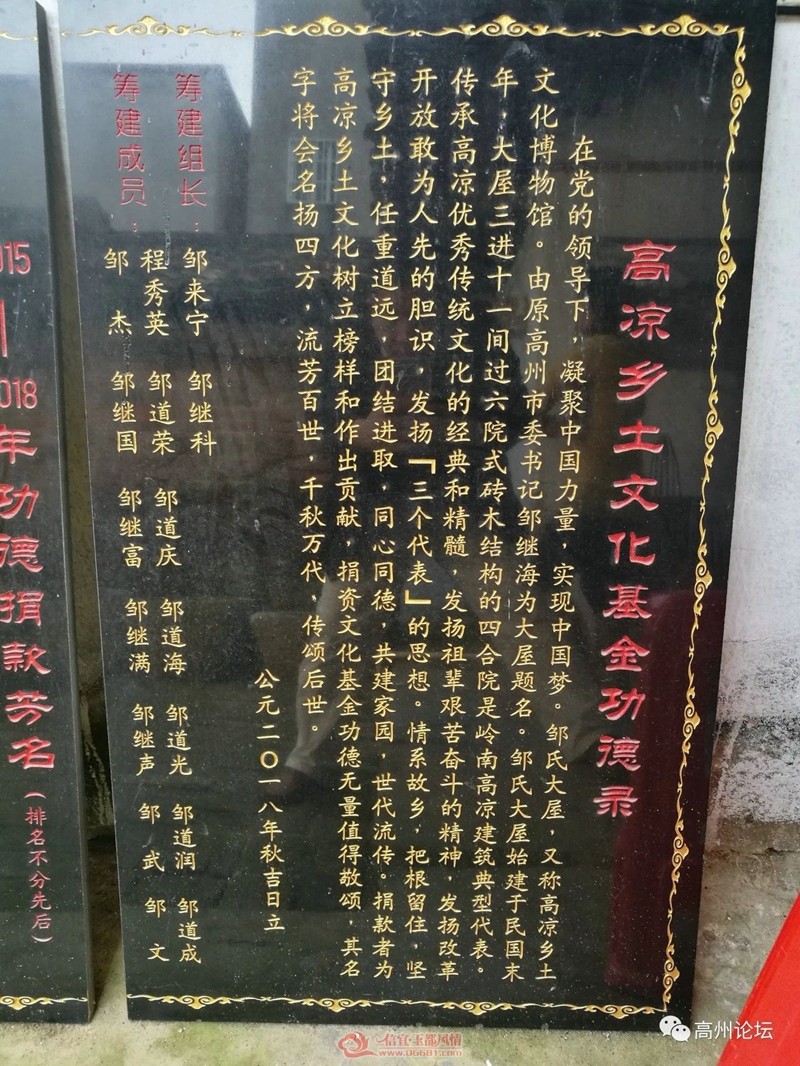 高凉乡土文化基金功德录
在党的领导下，凝聚中国力量，实现中国梦。邹氏大屋，又称高凉乡土
文化博物馆。由原高州市委书记邹继海为大屋题名。邹氏大屋始建于民国末
年，大屋三进十一间过六院式砖木结构的四合院是岭南高凉建筑典型代表。
传承高凉优秀传统文化的经典和精髓，发扬祖辈艰苦奋斗的精神，发扬改革
开放敢为人先的胆识，发扬「三个代表」的思想。情系故乡，把根留住，坚
守乡土，任重道远，团结进取，同心同德，共建家园，世代流传。捐款者为
高凉乡土文化树立榜样和作出贡献，捐资文化基金功德无量值得敬颂，其名
字将会名扬四方，流芳百世，千秋万代，传颂后世。
公元二〇一八年秋吉日立
筹建组长：邹来宁 邹继科
筹建成员：程秀英 邹道荣 邹道庆 邹道海 邹道光 邹道润 邹道成
邹杰 邹继国 邹继富 邹继满 邹继声 邹武 邹文
015
018年功德捐款芳名（排名不分先后）
高州论坛
信宜·玉都风情
www.06681.com